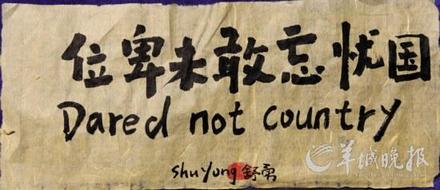 位卑未敢忘忧国
Dared not country
shuyong 舒勇
羊城晚报